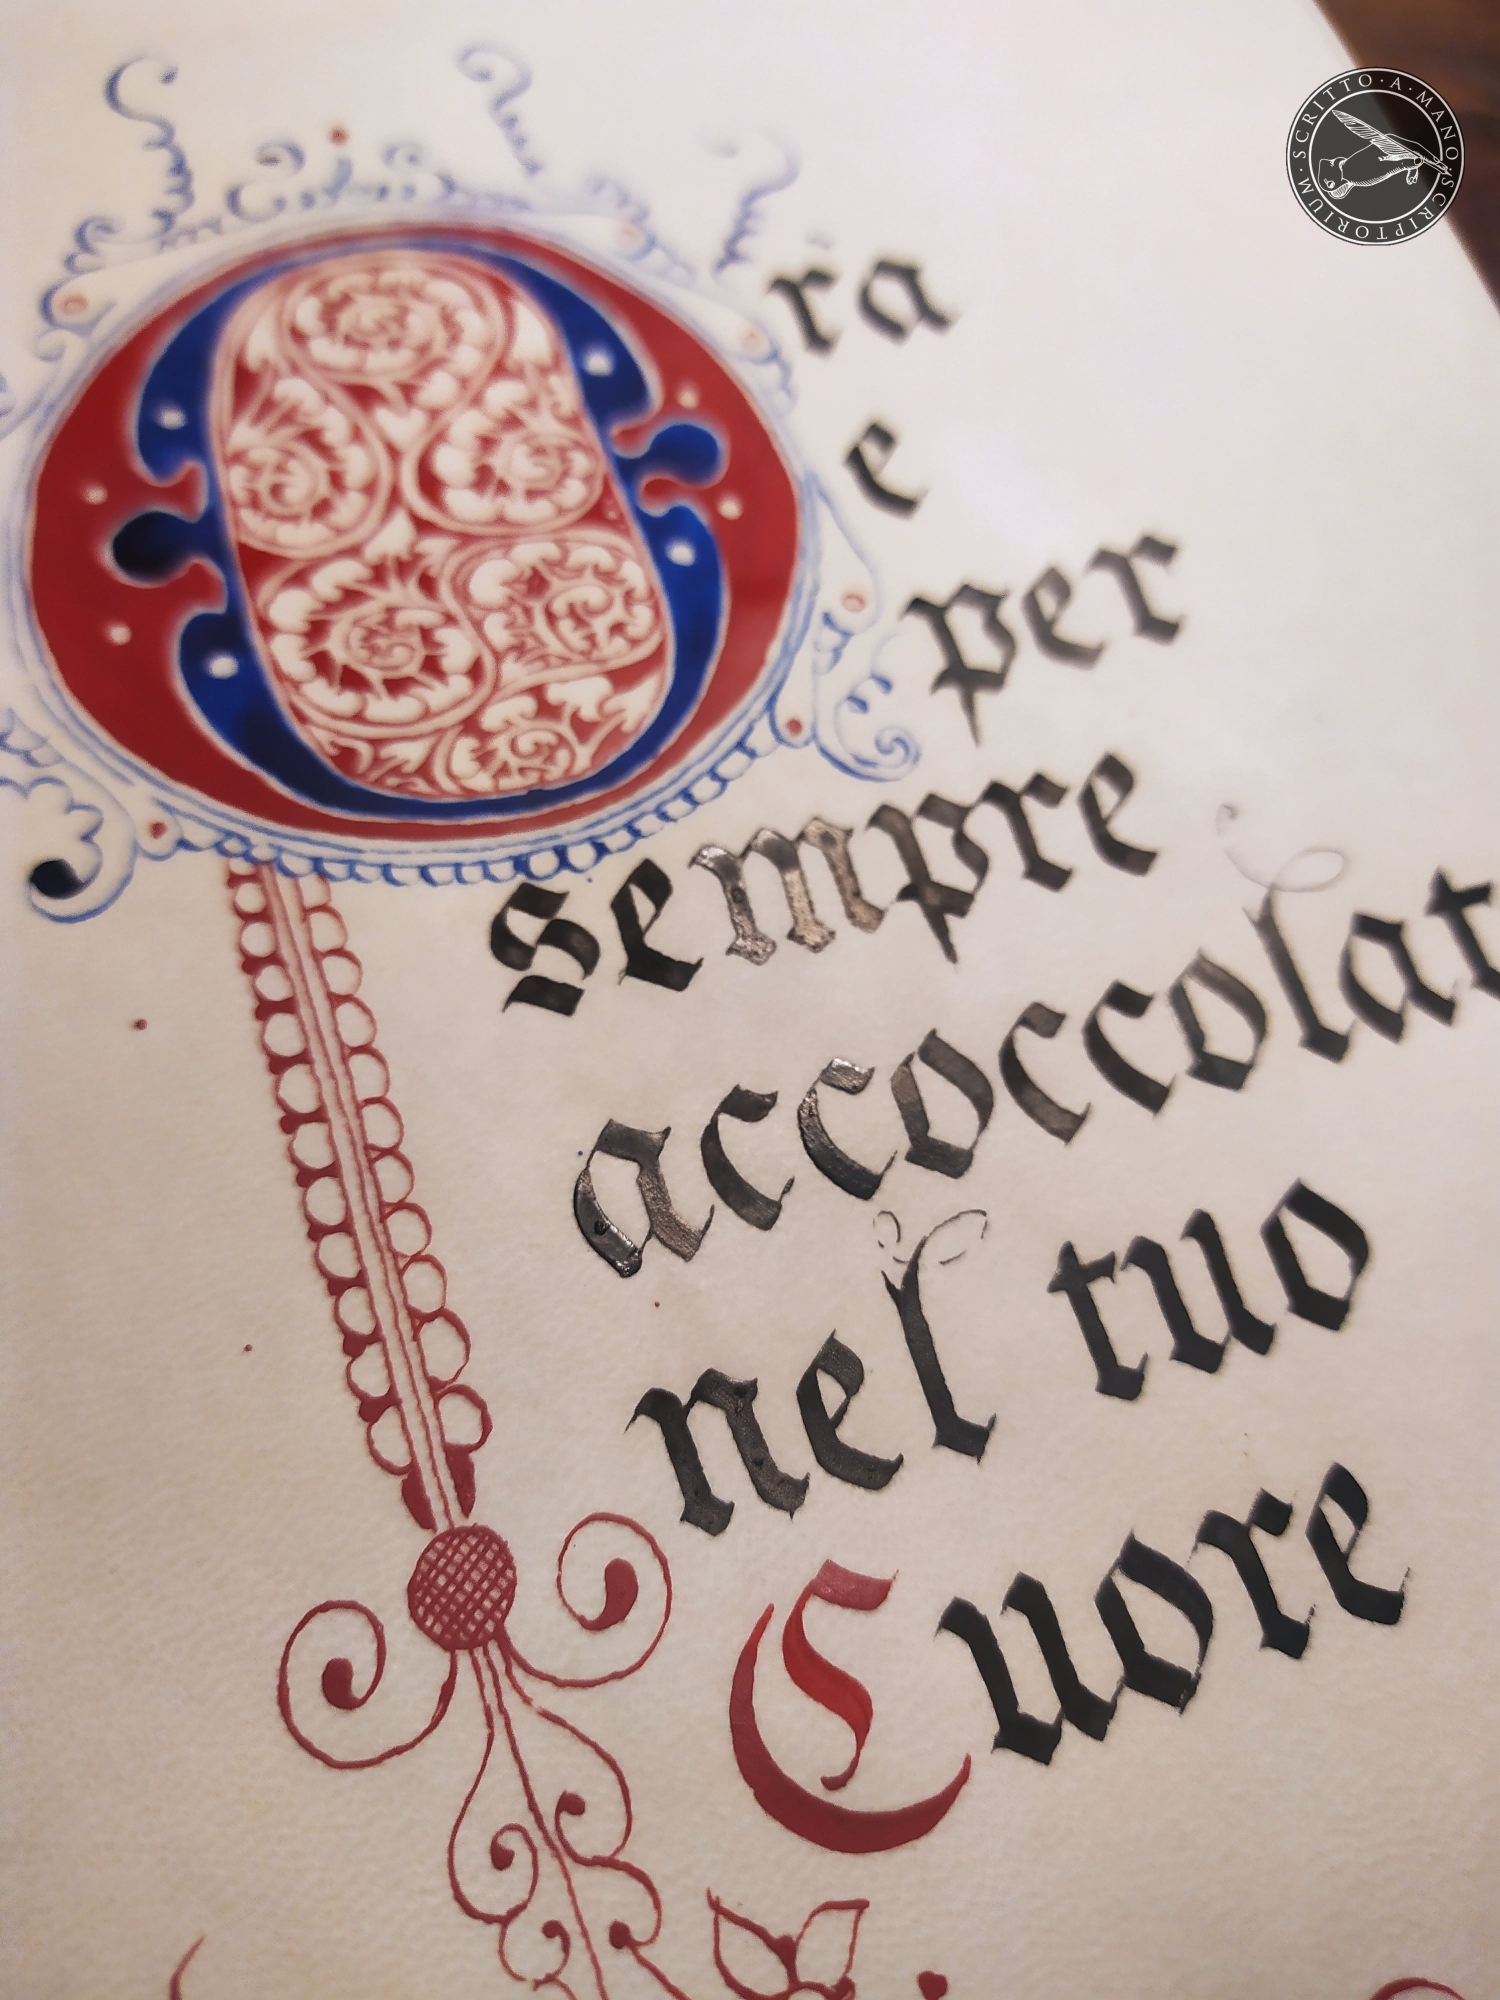 Ora
e
per
sempre
accoccolat
nel tuo
Cuore
SCRITTO·A·MANO·SCRIPTORIUM·